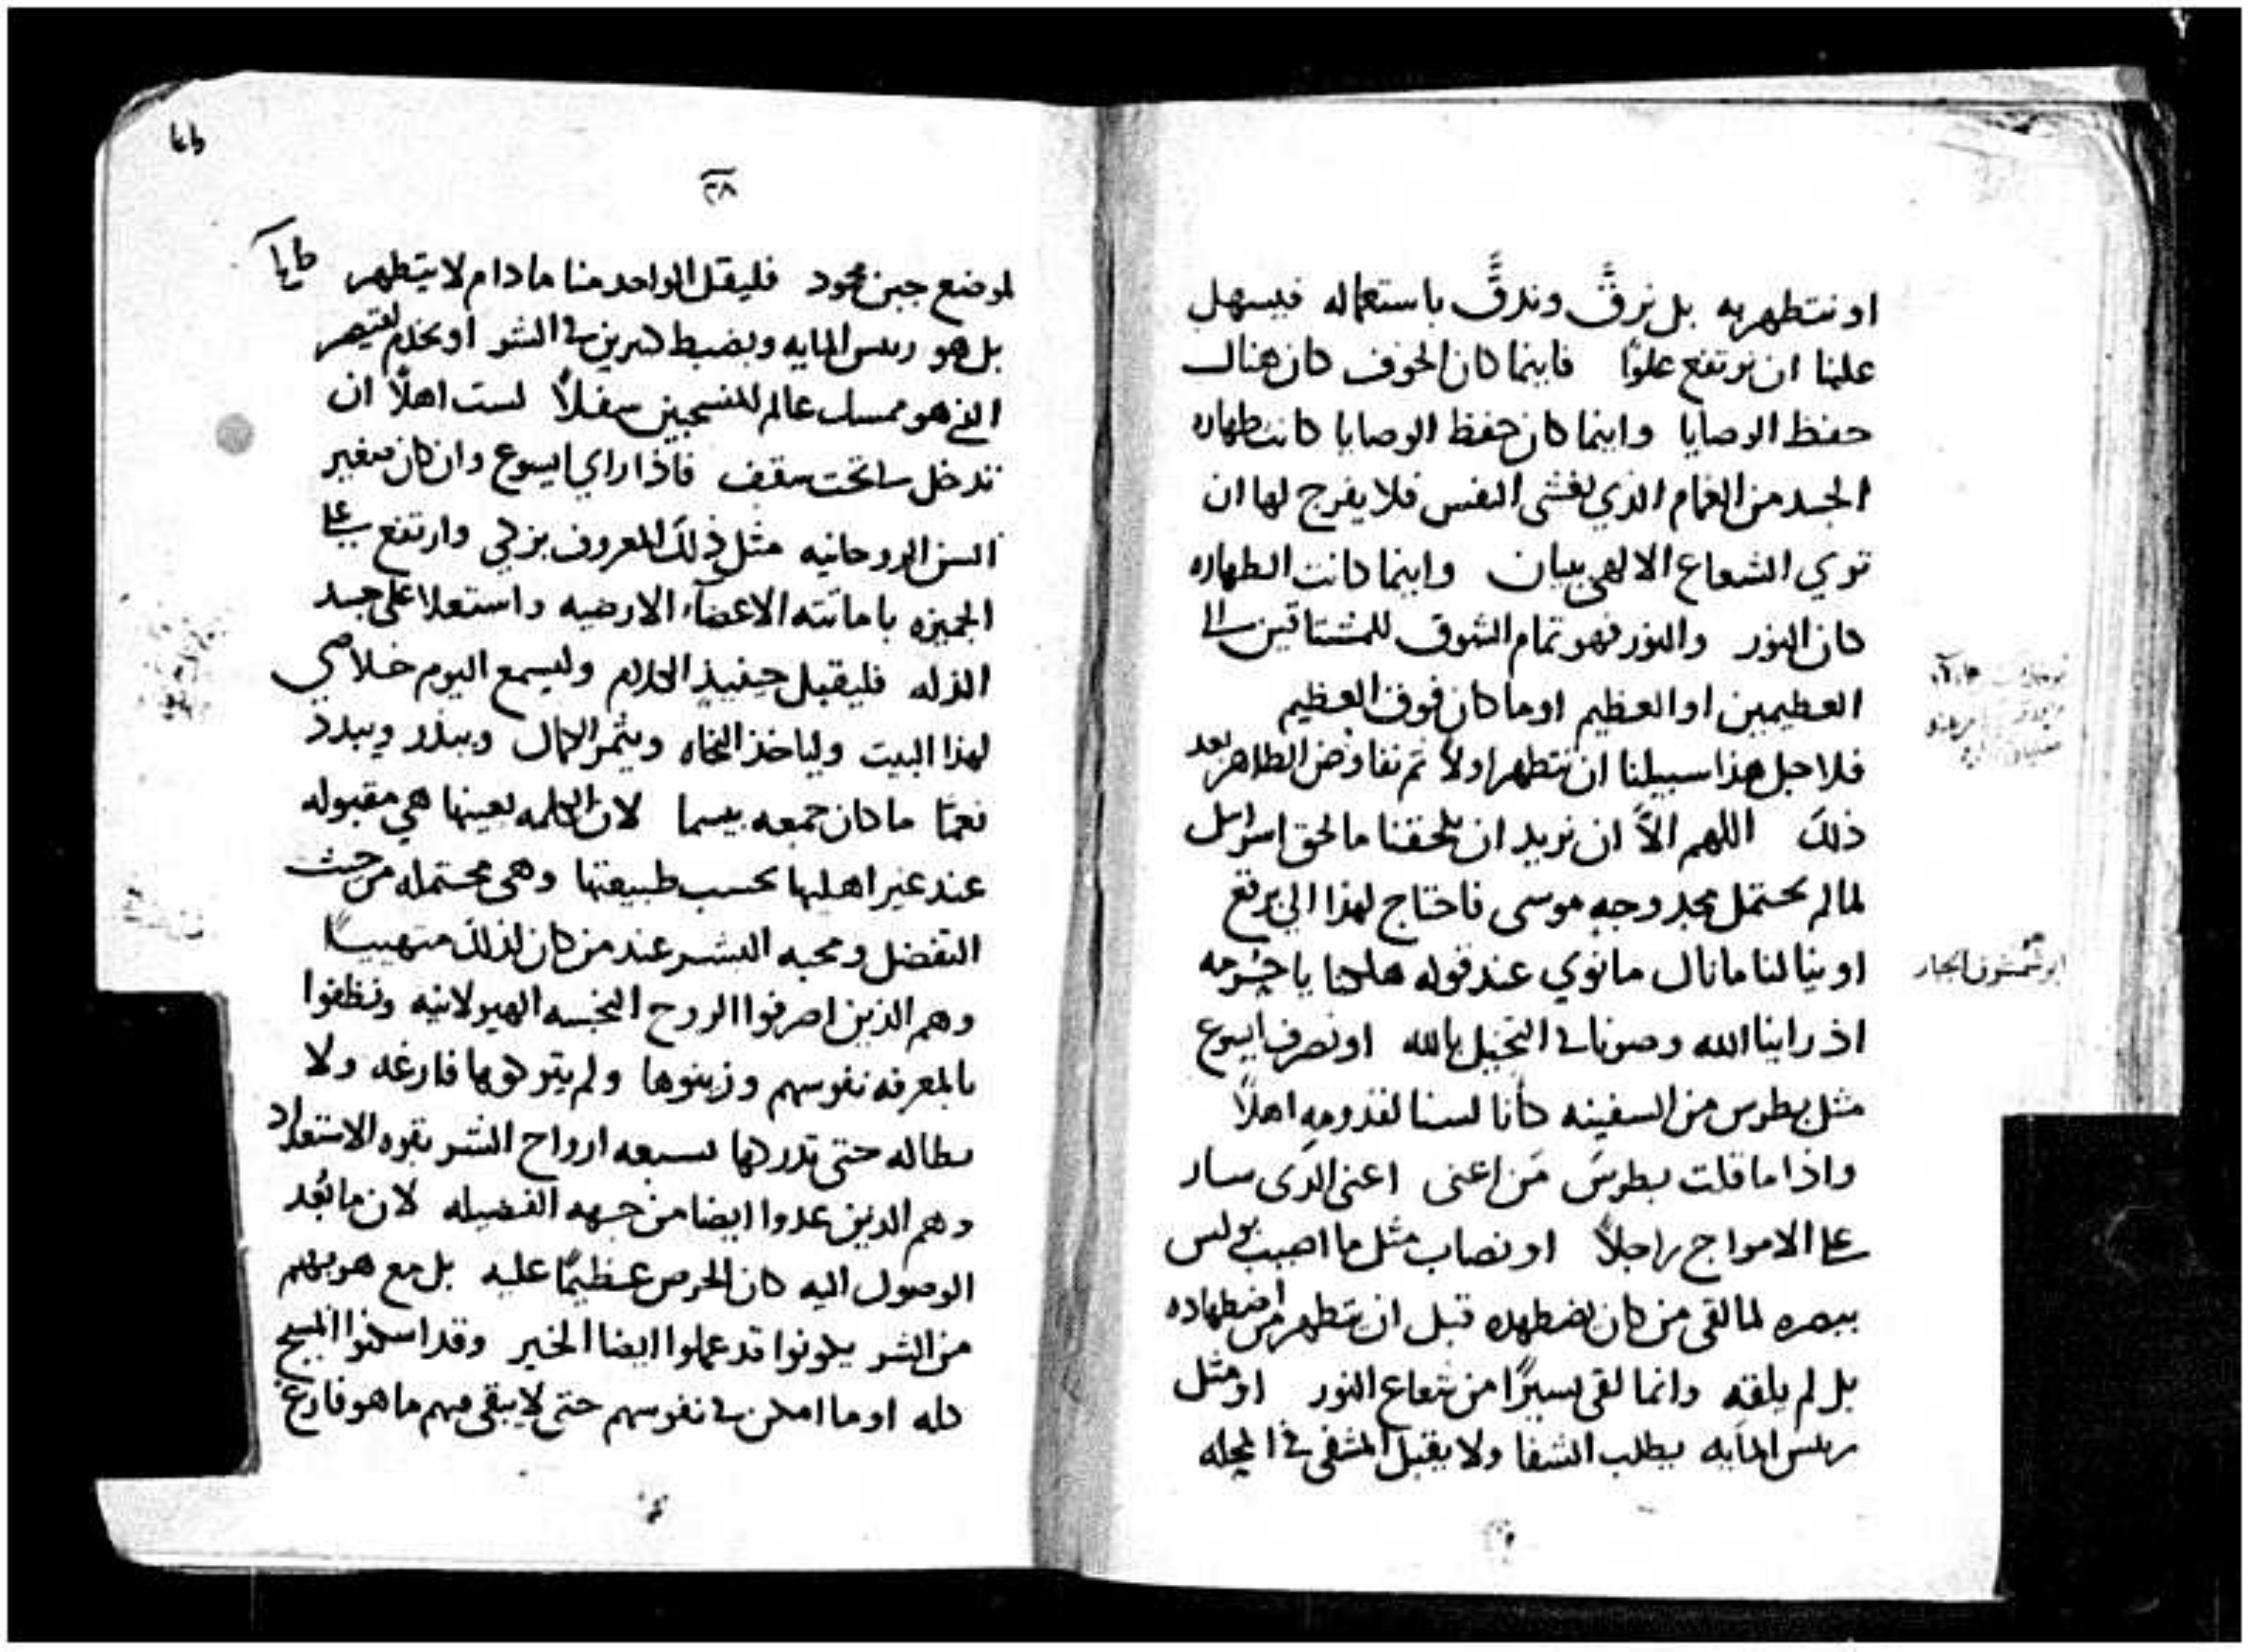 او نتطهر به بل نرقَّ وندقَّ باستعماله فيسهل
علينا ان نرتفع علوًا فاينما كان الخوف كان هناك
حفظ الوصايا واينما كان حفظ الوصايا كانت طهاره
الجسد من الغمام الذي يغشى النفس فلا يفرج لها ان
تري الشعاع الالهي ببيان واينما كانت الطهاره
كان النور والنور فهو تمام الشوق للمشتاقين الى
العظيمين او العظيم او ما كان فوق العظيم
فلاجل هذا سبيلنا ان نتطهر اولاً ثم نفاوض الطاهر بعد
ذلك اللهم الاّ ان نريد ان يلحقنا ما لحق اسرايل
لما لم يحتمل مجد وجه موسى فاحتاج لهذا الى برقع
او ينالنا ما نال مانوي عند قوله هلكنا يا
اذ راينا الله وصرنا في التخيل بالله او نصرف ايسوع
مثل بطرس من السفينه كانا لسنا لقدومه اهلاً
واذا ما قلت بطرسَ مَن اعنى اعنى الذى سار
على الامواج راجلاً او نصاب مثل ما اصيب بولس
ببصره لما لقى من كان يضطهده قبل ان يتطهر من اضطهاده
بل لم يلقه وانما لقى يسيرًا من شعاع النور او مثل
ريس المايه يطلب الشفا ولا يقبل المشفى في
ابو شمشون الجبار
٢٨
لموضع جبن محمود فليقل الواحد منا ما دام لا يتطهر
بل هو ريس المايه ويضبط كبيرين في الشر او يخدم لقيصر
الذي هو ممسك عالم للمنسحبين سفلاً لست اهلاً ان
تدخل لى تحت سقف فاذا راي ايسوع وان كان صغير
السن الروحانيه مثل ذلك المعروف بزكى وارتفع على
الجميزه باماتته الاعضآء الارضيه واستعلا على جسد
الذله فليقبل حينيذ الكلام وليسمع اليوم خلاصي
لهذا البيت ولياخذ النجاه ويثمر الكمال ويبذر ويبدد
نعمًا ما كان جمعه بيسما لان الكلمه بعينها هي مقبوله
عند غير اهليها بحسب طبيعتها وهى محتمله من حيث
التفضل ومحبه البشر عند من كان لذلك متهيبًا
وهم الذين اصرفوا الروح النجسه الهيولانيه ونظفوا
بالمعرفه نفوسهم وزينوها ولم يتركوها فارغه ولا
بطاله حتى تدركها بسبعه ارواح الشر بقوه الاستعداد
وهم الذين عدوا ايضا من جهه الفضيله لان ما بَعُد
الوصول اليه كان الحرص عظيمًا عليه بل مع هربهم
من الشر يكونوا قد عملوا ايضا الخير وقد اسكنوا المسيح
كله او ما امكن في نفوسهم حتى لا يبقى فيهم ما هو فارغ